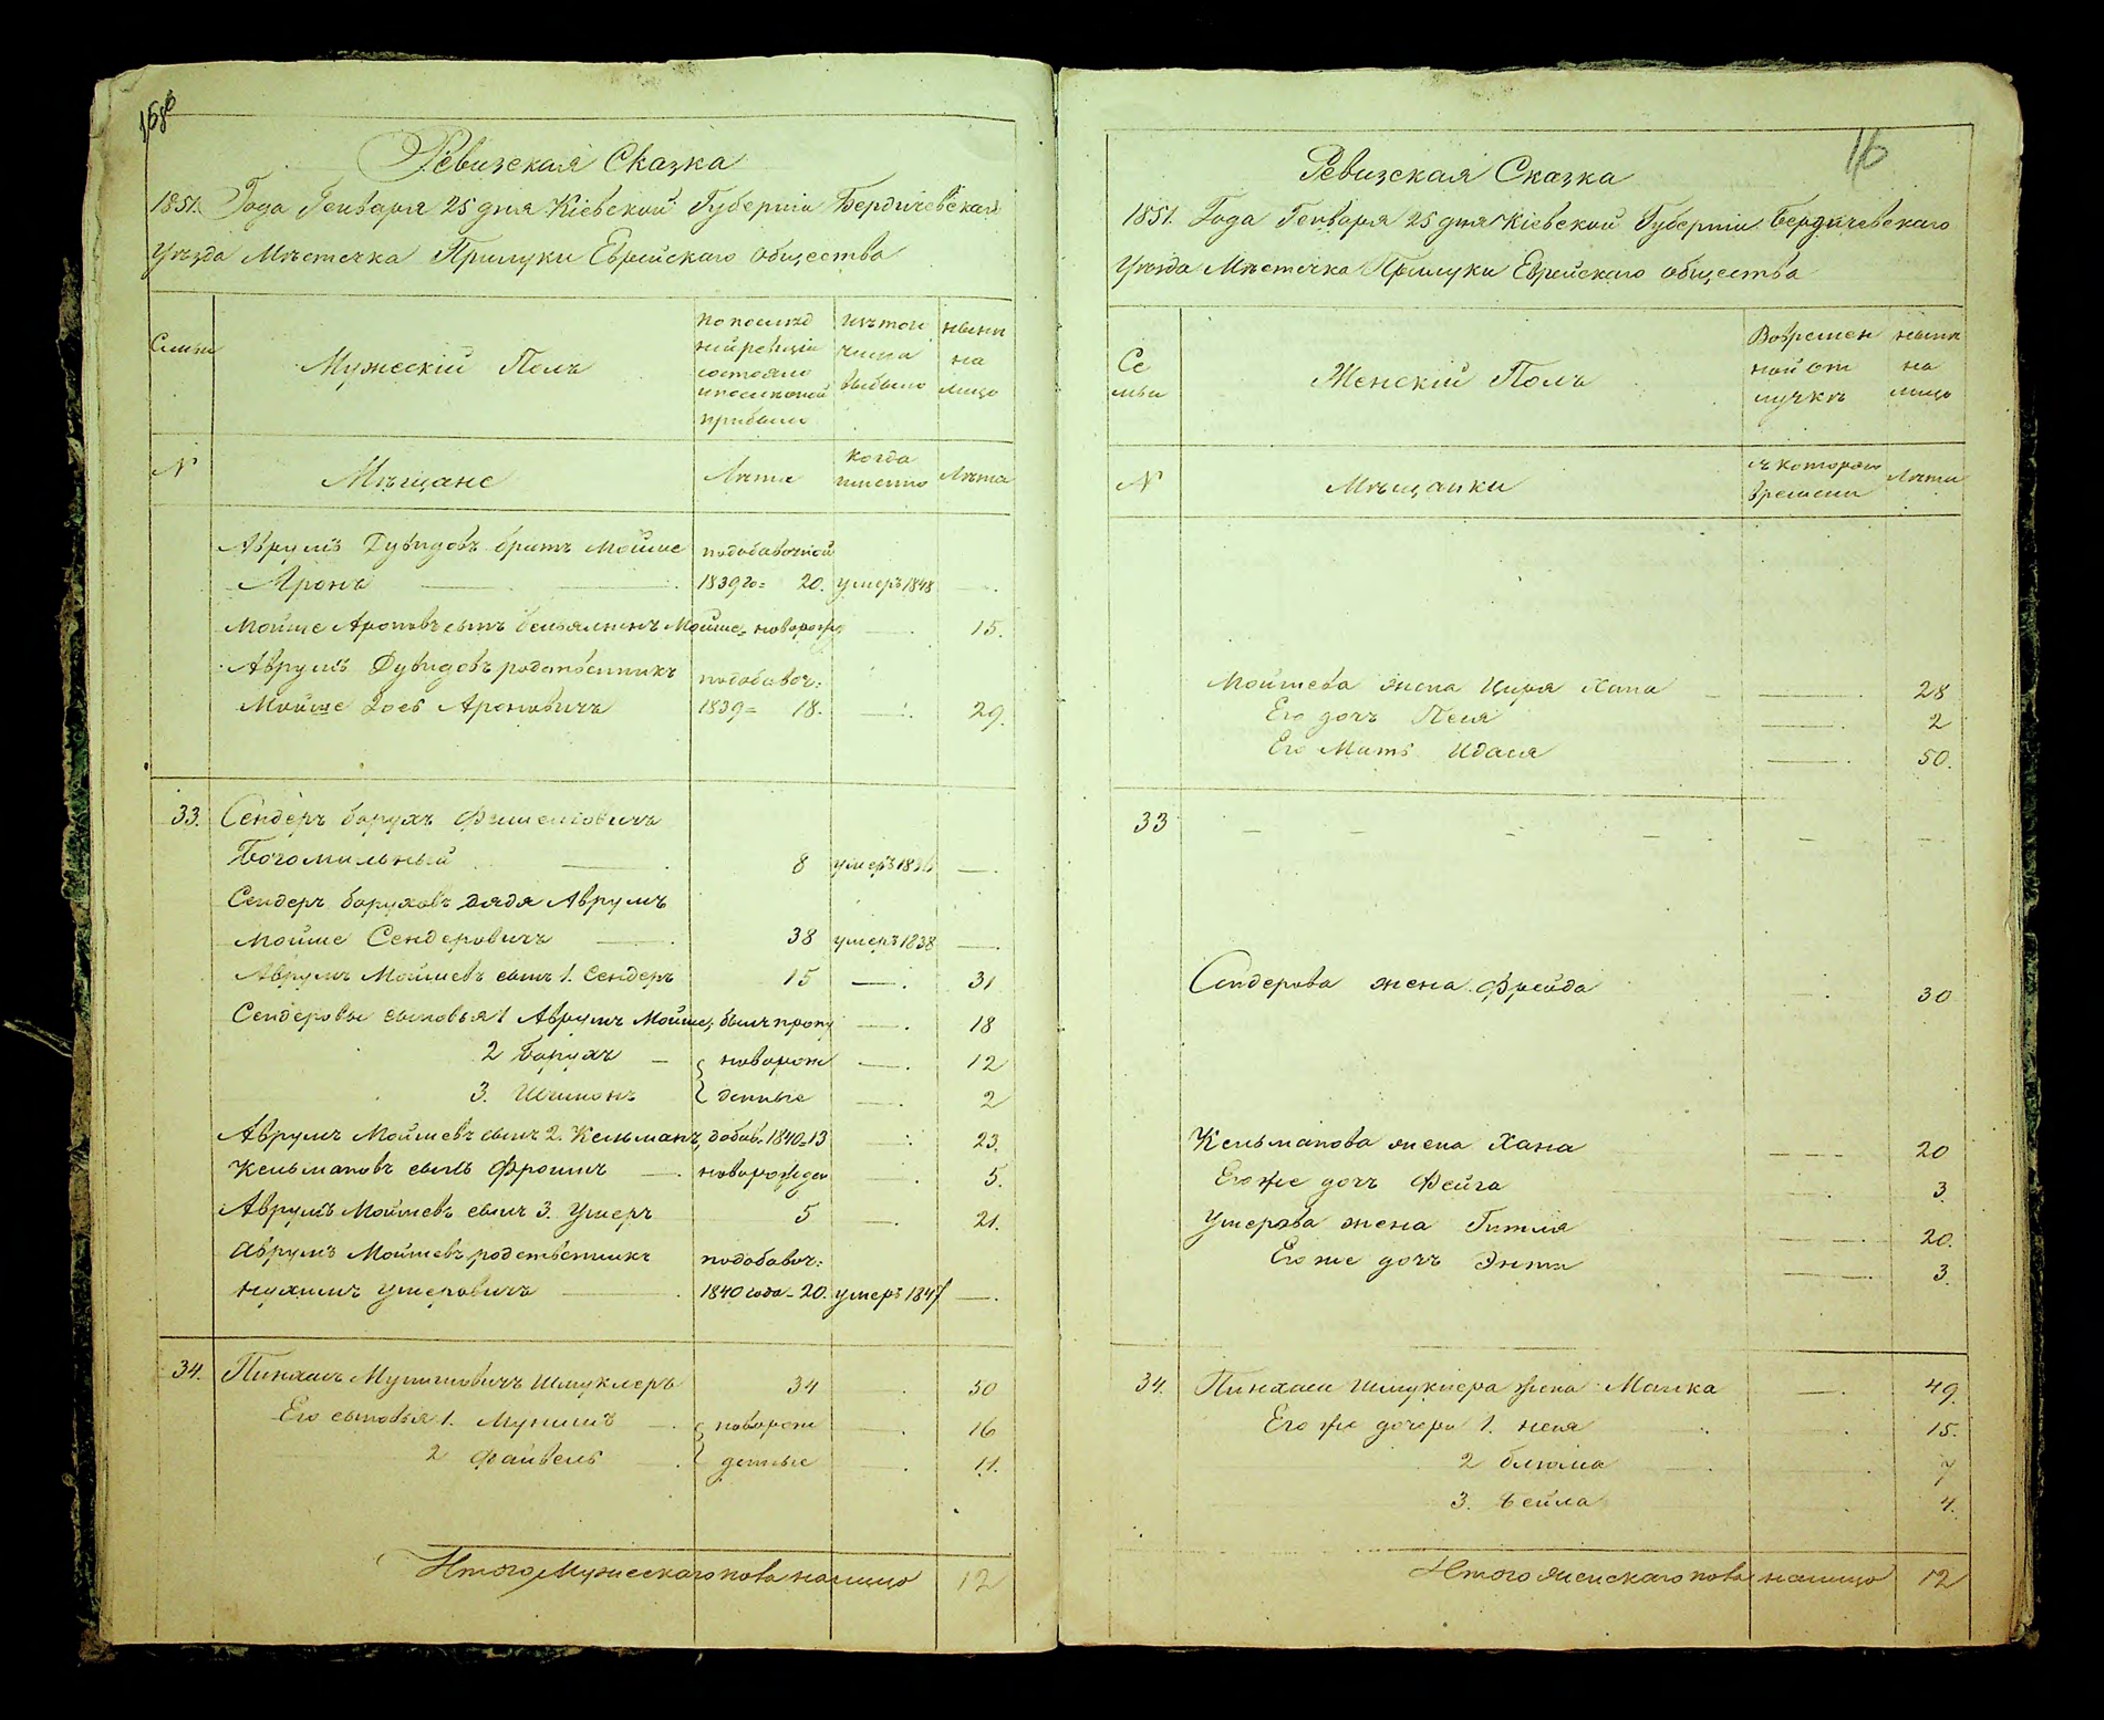 Ревизская Сказка
1851. Года Генваря 25 дня Кіевской Губерніи Бердичевскаго
Уѣзда Мѣстечка Прилуки Еврейскаго общества
Семьи
Мужескій Полъ
по послѣд
ней ревизіи
состояло
и послѣ оной
прибыло
изъ того
числа
выбыло
нынѣ
на
лицо
N
Мѣщане
Лѣта
когда
именно
Лѣта
Аврумъ Дувидовъ братъ Мойше подобавочной
Аронъ 1839 го= 20. умеръ 1848
Мойше Ароновъ сынъ Беньяминъ Мойше новорож 15.
Аврумъ Дувидовъ родственникъ подобавоч:
Мойше Ароновичъ 1839= 18. 29.
33. Сендеръ Борухъ
Богомильный 8 умеръ
Сендеръ Боруховъ дядя Аврумъ
Мойше Сендеровичъ 38 умеръ 1838
Аврумъ Мойшевъ сынъ 1. Сендеръ 15 31
Сендеровы сыновья 1 Аврумъ Мойше, былъ проп 18
2 Борухъ новорож 12
3. Шимонъ денные 2
Аврумъ Мойшевъ сынъ 2. Кельманъ, добав. 1840=13 23.
Кельмановъ сынъ Фроимъ новорожден 5.
Аврумъ Мойшевъ сынъ 3. Ушеръ 5 21.
Аврумъ Мойшевъ родственникъ подобавоч:
Нухимъ Ушеровичъ 1840 года - 20. умеръ 1847
34. Пинхасъ Мунишовичъ Шмуклеръ 34 50
Его сыновья 1. Мунишъ новорож 16
2 Файвель денные 11.
Итого Мужескаго пола налицо 12
16
Ревизская Сказка
1851. Года Генваря 25 дня Кіевской Губерніи Бердичевскаго
Уѣзда Мѣстечка Прилуки Еврейскаго общества
Се
мьи
Женскій Полъ
Вовремен
ной от
лучкѣ
нынѣ
на
лицо
N
Мѣщанки
съ котораго
времени
Лѣта
Мойшева жена Цирля Хана 28
Его дочь Песя 2
Его Мать Идася 50.
33
Сендерова жена Фрейда 30
Кельманова жена Хана 20
Его же дочь Фейга 3.
Ушерова жена Гитля 20.
Его же дочь Энтя 3.
34. Пинхаса Шмуклера жена Малка 49.
Его же дочери 1. Неся 15.
2 Блюма 7
3. Бейла 4.
Итого женскаго пола налицо 12